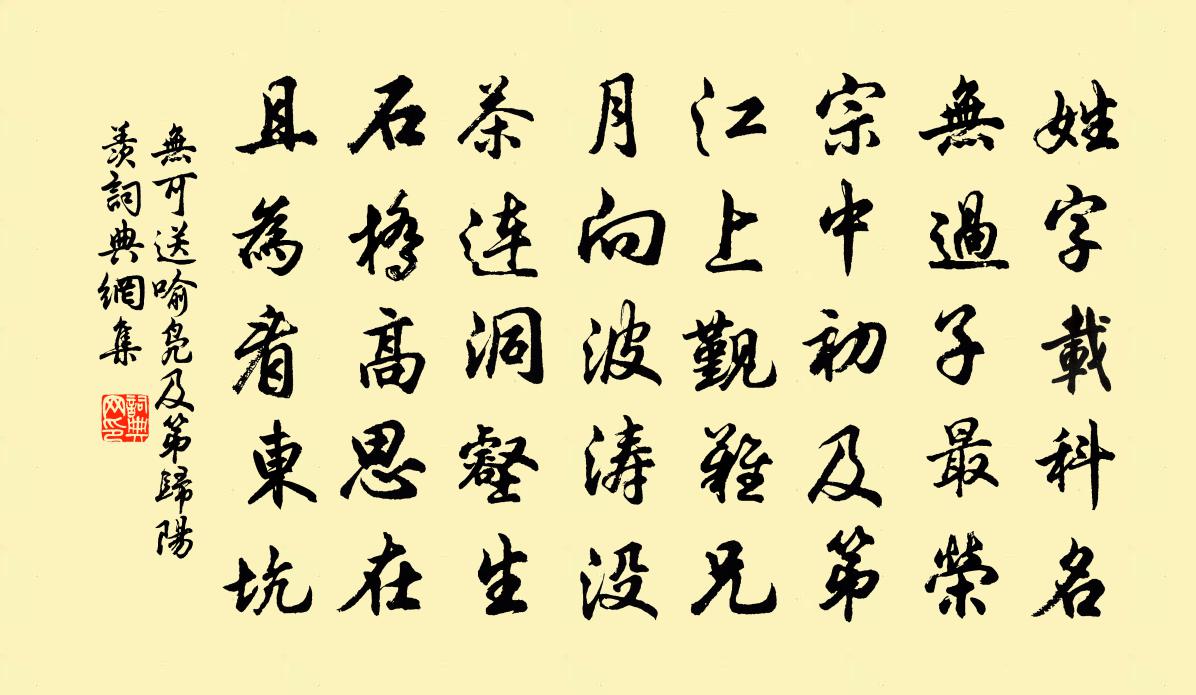 姓字載科名
無過子最榮
宗中初及第
江上覲難兄
月向波濤没
茶連洞壑生
石橋高思在
且為看東坑
無可送喻鳧及第歸陽
羨詞典網集
詞典网印